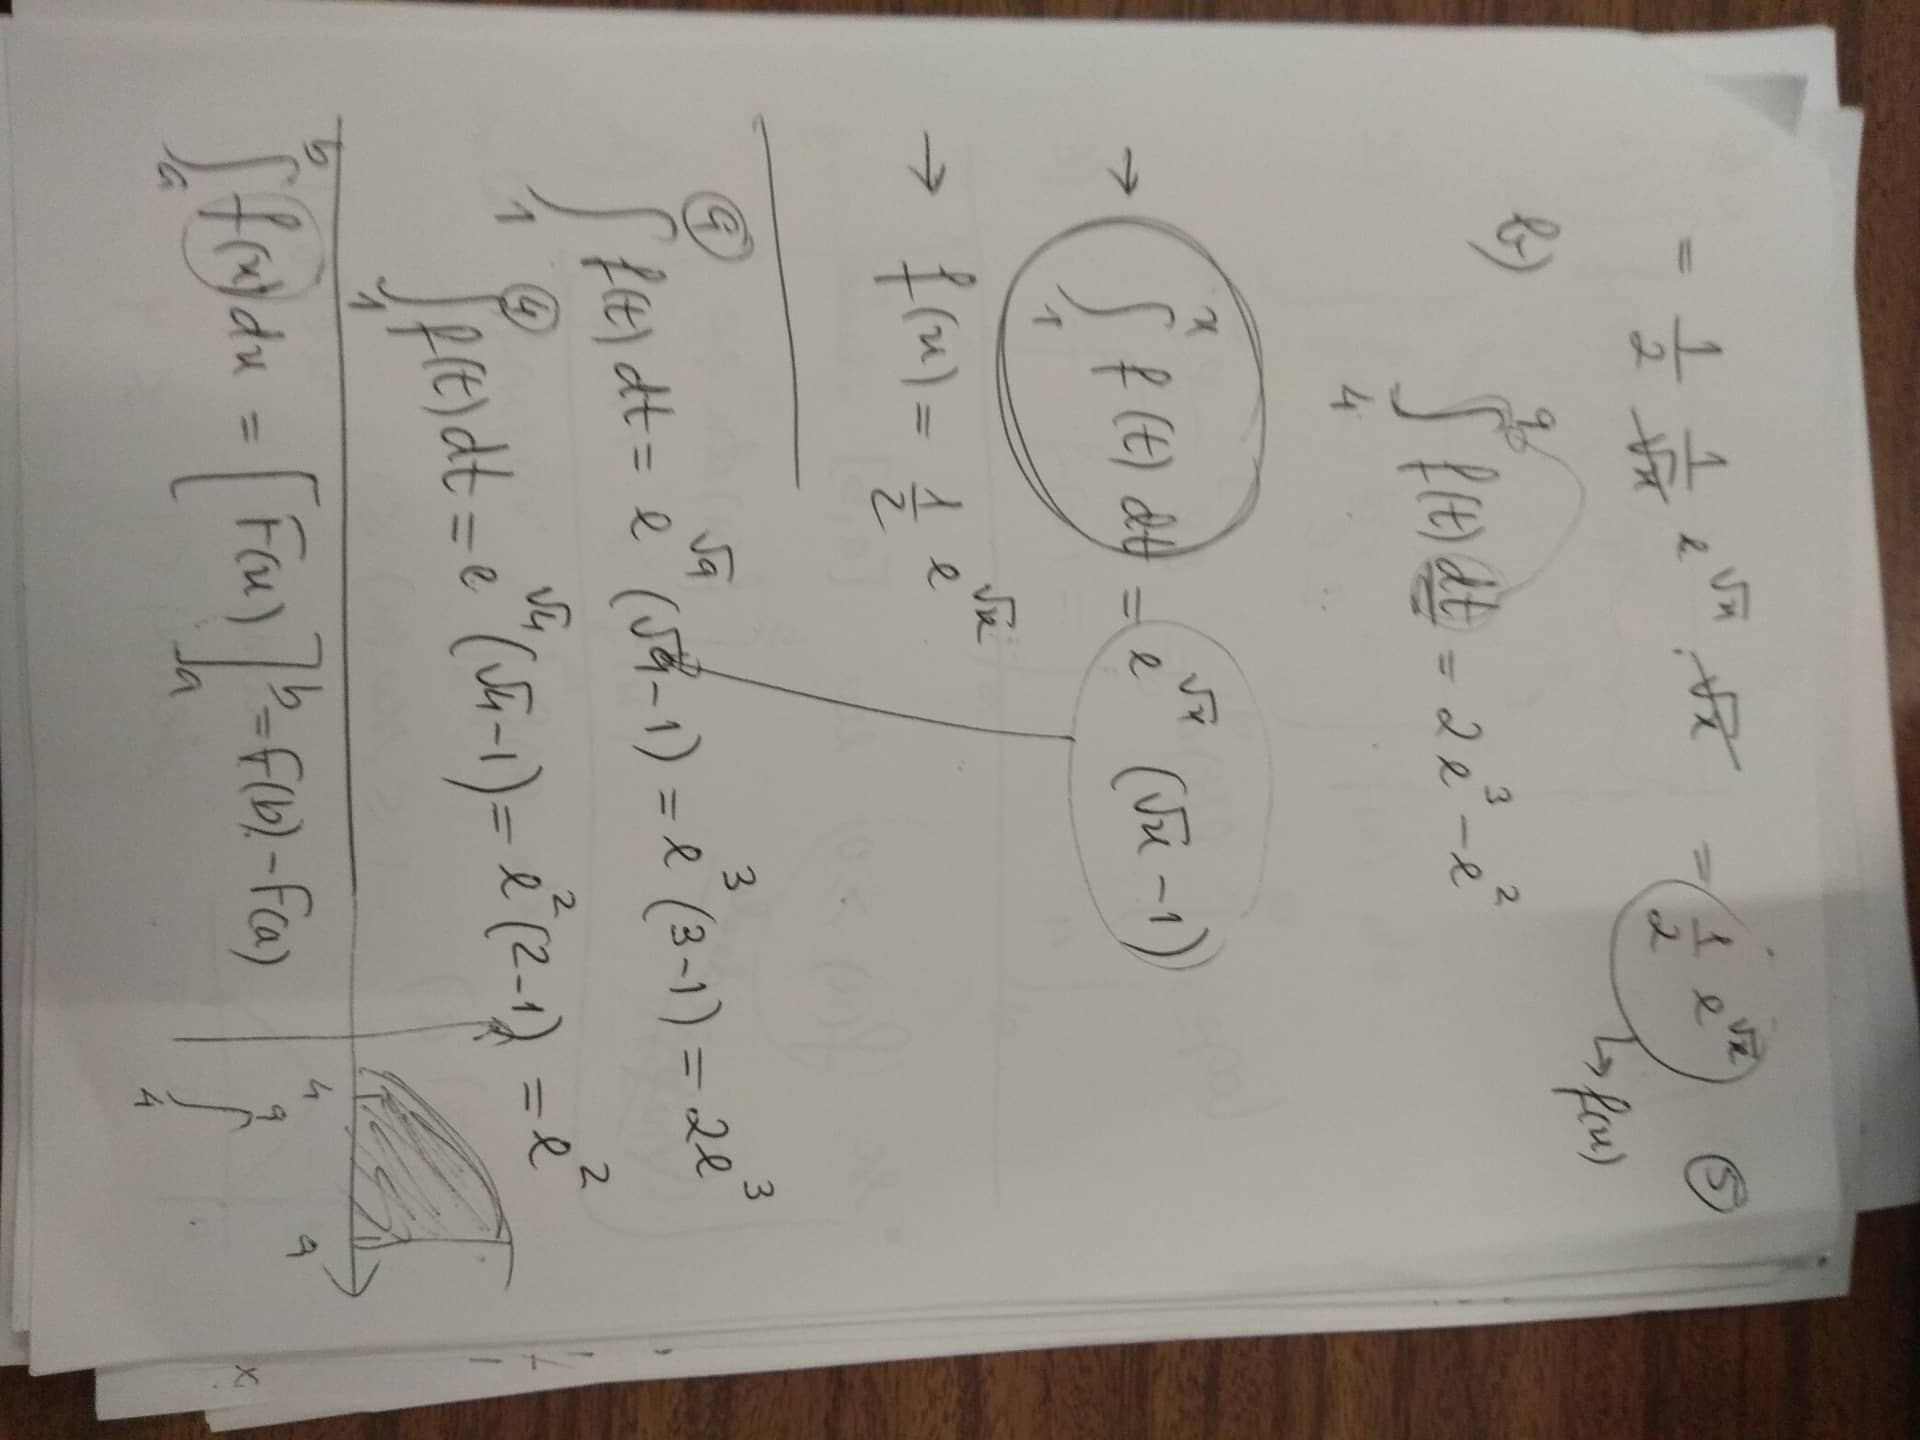 = 1/2 1/√x e^√x · √x = 1/2 e^√x ⑤
↳ f(x)
b) ∫_4^9 f(t) dt = 2e^3 - e^2
→ ∫_1^x f(t) dt = e^√x (√x - 1)
→ f(x) = 1/2 e^√x
∫_1^9 f(t) dt = e^√9 (√9 - 1) = e^3 (3-1) = 2e^3
∫_1^4 f(t) dt = e^√4 (√4 - 1) = e^2 (2-1) = e^2
4 9
∫_a^b f(x) dx = [F(x)]_a^b = F(b) - F(a)
∫_4^9